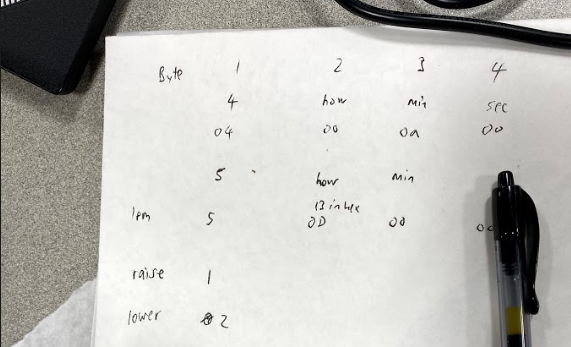 Byte 1 2 3 4
4 hour min sec
04 00 0a 00
5 hour min
13 in hex
1pm 5 0D 00
raise 1
lower 2